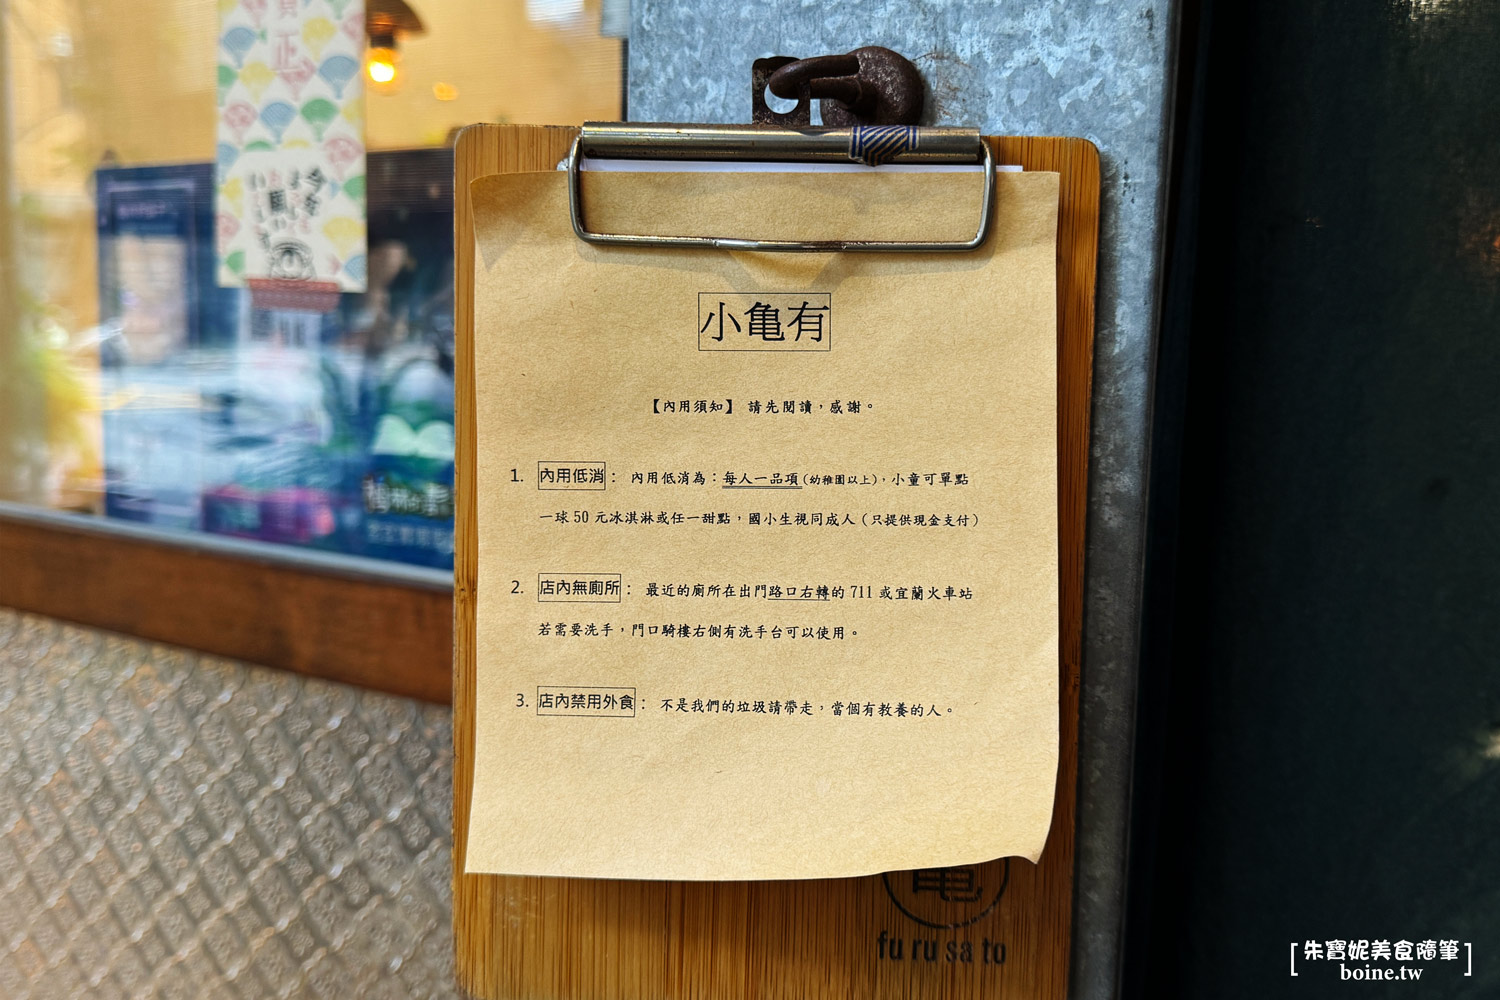 小亀有
【內用須知】 請先閱讀,感謝。
1. 內用低消: 內用低消為:每人一品項(幼稚園以上),小童可單點
一球 50 元冰淇淋或任一甜點,國小生視同成人(只提供現金支付)
2. 店內無廁所: 最近的廁所在出門路口右轉的 711 或宜蘭火車站
若需要洗手,門口騎樓右側有洗手台可以使用。
3. 店內禁用外食: 不是我們的垃圾請帶走,當個有教養的人。
fu ru sa to
[朱寶妮美食隨筆]
boine.tw